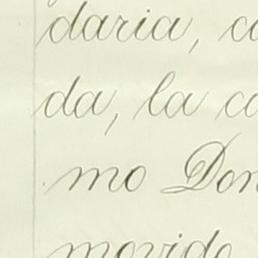 daria, co
da, la ca
mo Don
movido